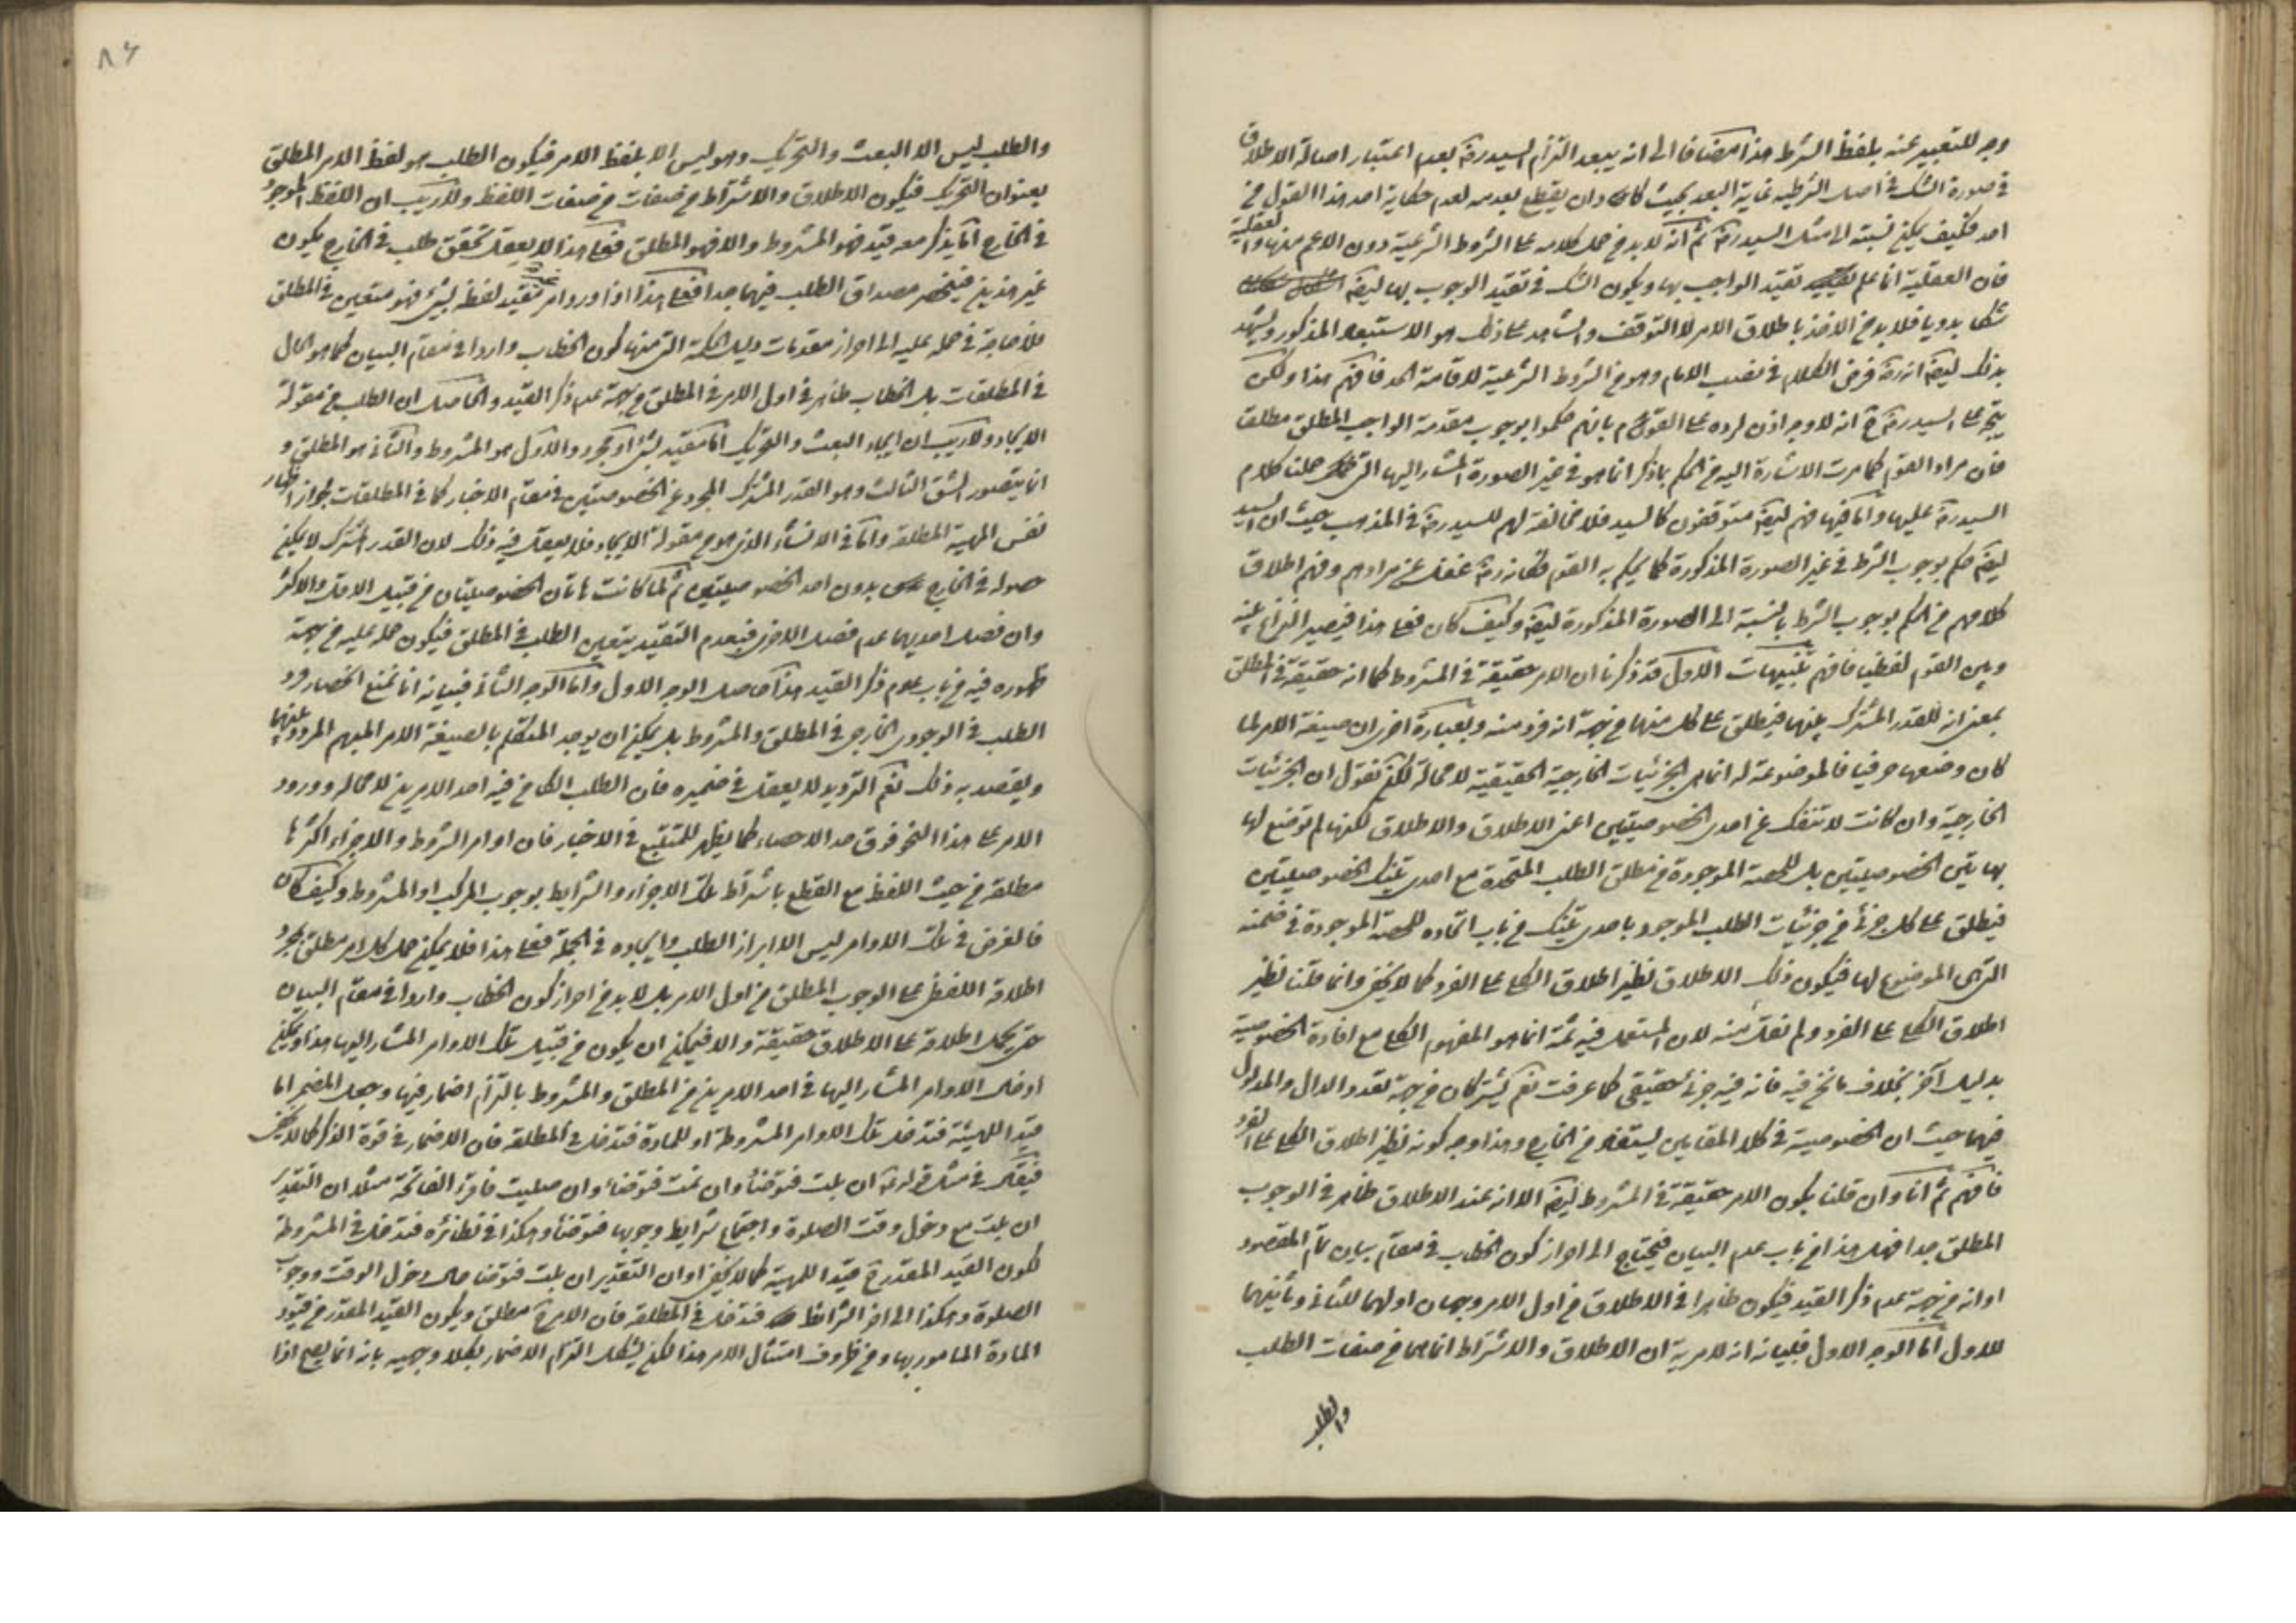 وجه للتعبير عنه بلفظ الشرط هذا مضافا الى انه يبعد التزام السيد ره بعدم اعتبار اصالة الاطلاق
في صورة الشك في اصل الشرطية غاية البعد بحيث كاد وان يقطع بعدمه لعدم حكاية احد هذا القول من
احد فكيف يمكن نسبته الى مثل السيد ره ثم انه لا بد من حمل كلامه على الشروط الشرعية دون الاعم منها والعقلية
فان العقلية انما علم تقيد الواجب بها ويكون الشك في تقيد الوجوب بها ايضا
شكا بدويا فلا بد من الاخذ باطلاق الامر لا التوقف والشاهد على ذلك هو الاستبعاد المذكور ويشهد
بذلك ايضا انه ره فرض الكلام في نصب الامام وهو من الشروط الشرعية لاقامة الحد فافهم هذا ولكن
يتجه على السيد ره ح انه لا وجه اذن لرده على القوم بانهم حكموا بوجوب مقدمة الواجب المطلق مطلقا
فان مراد القوم كما مرت الاشارة اليه من الحكم بما ذكر انما هو في غير الصورة المشار اليها التي حملنا كلام
السيد ره عليها واما فيها فهم ايضا متوقفون كالسيد فلا مخالفة لهم للسيد ره في المذهب حيث ان السيد
ايضا حكم بوجوب الشرط في غير الصورة المذكورة كما يحكم به القوم فكانه ره غفل عن مرادهم وفهم اطلاق
كلامهم من الحكم بوجوب الشرط بالنسبة الى الصورة المذكورة ايضا وكيف كان فعلى هذا فيصير النزاع بينه
وبين القوم لفظيا فافهم تنبيهات الاول قد ذكرنا ان الامر حقيقة في المشروط كما انه حقيقة في المطلق
بمعنى انه للقدر المشترك بينهما فيطلق على كل منهما من جهة انه فرد منه وبعبارة اخرى ان صيغة الامر لما
كان وضعها حرفيا فالموضوعة له انما هي الجزئيات الخارجية الحقيقية لا محالة لكن نقول ان الجزئيات
الخارجية وان كانت لا تنفك عن احدى الخصوصيتين اعنى الاطلاق والاطلاق لكنها لم توضع لها
بهاتين الخصوصيتين بل للحصة الموجودة من مطلق الطلب المتحدة مع احدى تينك الخصوصيتين
فيطلق على كل جزئي من جزئيات الطلب الموجود باحدى تينك من باب اتحاده للحصة الموجودة في ضمنه
التي هي الموضوع لها فيكون ذلك الاطلاق نظير اطلاق الكلي على الفرد كما لا يخفى وانما قلنا نظير
اطلاق الكلي على الفرد ولم نقل منه لان المستعمل فيه ثمة انما هو المفهوم الكلي مع افادة الخصوصية
بدليل آخر بخلاف ما نحن فيه فانه فيه جزئي حقيقي كما عرفت نعم يشتركان من جهة تعدد الدال والمدلول
فيهما حيث ان الخصوصية في كلا المقامين يستفاد من الخارج وهذا وجه كونه نظير اطلاق الكلي على الفرد
فافهم ثم انا وان قلنا بكون الامر حقيقة في المشروط ايضا الا انه عند الاطلاق ظاهر في الوجوب
المطلق جدا فهل هذا من باب عدم البيان فيحتاج الى احراز كون الخطاب في مقام بيان تمام المقصود
او انه من جهة عدم ذكر القيد فيكون ظاهرا في الاطلاق من اول الامر وجهان اولهما للثاني وثانيهما
للاول اما الوجه الاول فبيانه انه لا مرية ان الاطلاق والاشتراط انما هما من صفات الطلب
والطلب
٨٦
والطلب ليس الا البعث والتحريك وهو ليس الا بلفظ الامر فيكون الطلب هو لفظ الامر المطلق
بعنوان التحريك فيكون الاطلاق والاشتراط من صفات من صفات اللفظ ولا ريب ان اللفظ الموجود
في الخارج اما يذكر معه قيد فهو المشروط والا فهو المطلق فعلى هذا لا يعقل تحقق طلب في الخارج يكون
غير هذين فينحصر مصداق الطلب فيهما جدا فعلى هذا اذا ورد امر تقيد لفظ بشيء فهو متعين في المطلق
فلا حاجة في حمله عليه الى احراز مقدمات دليل الحكمة التي منها كون الخطاب واردا في مقام البيان كما هو الحال
في المطلقات بل الخطاب ظاهر في اول الامر في المطلق من جهة عدم ذكر القيد والحاصل ان الطلب من مقولة
الايجاد ولا ريب ان ايجاد البعث والتحريك اما مقيد بشيء او مجرد والاول هو المشروط والثاني هو المطلق و
انما يتصور الشق الثالث وهو القدر المشترك المجرد عن الخصوصيتين في مقام الاخبار كما في المطلقات لجواز اخبار
نفس المهية المطلقة واما في الانشاء الذي هو من مقولة الايجاد فلا يعقل فيه ذلك لان القدر المشترك لا يمكن
حصوله في الخارج بدون احد الخصوصيتين ثم لما كانت هاتان الخصوصيتان من قبيل الاقل والاكثر
وان فصل احديهما عدم فصل الاخرى فبعدم التقييد يتعين الطلب في المطلق فيكون حمله عليه من جهة
ظهوره فيه من باب عدم ذكر القيد هذا حاصل الوجه الاول واما الوجه الثاني فبيانه انا نمنع انحصار فرد
الطلب في الوجود الخارجي في المطلق والمشروط بل يمكن ان يوجد المتكلم بالصيغة الامر المبهم المردد بينهما
ويقصد به ذلك نعم الترديد لا يعقل في ضميره فان الطلب الكامن فيه احد الامرين لا محالة وورود
الامر على هذا النحو فوق حد الاحصاء كما يظهر للمتتبع في الاخبار فان اوامر الشروط والاجزاء اكثرها
مطلقة من حيث اللفظ مع القطع باشتراط تلك الاجزاء والشرايط بوجوب المركب او المشروط وكيف كان
فالغرض في تلك الاوامر ليس الا ابراز الطلب وايجاده في الجملة فعلى هذا فلا يمكن حمل كل امر مطلق بمجرد
اطلاقه اللفظي على الوجوب المطلق من اول الامر بل لا بد من احراز كون الخطاب واردا في مقام البيان
حتى يحمل اطلاقه على الاطلاق حقيقة والا فيمكن ان يكون من قبيل تلك الاوامر المشار اليها هذا ويمكن
ادخال الاوامر المشار اليها في احد الامرين من المطلق والمشروط بالتزام اضمار فيها وجعل المضمر اما
قيدا للهيئة فتدخل تلك الاوامر المشروطة او للمادة فتدخل في المطلقة فان الاضمار في قوة الذكر كما لا يخفى
فيقال في مثل قوله ع ان بلت فتوضأ وان نمت فتوضأ وان صليت فاقرء الفاتحة مثلا ان التقدير
ان بلت مع دخول وقت الصلوة واجتماع شرايط وجوبها فتوضأ وهكذا في نظائره فتدخل في المشروطة
لكون القيد المقدر ح قيدا للهيئة كما لا يخفى او ان التقدير ان بلت فتوضأ حال دخول الوقت ووجوب
الصلوة وهكذا الى اخر الشرائط فتدخل في المطلقة فان الامر ح مطلق ويكون القيد المقدر من قيود
المادة المامور بها ومن ظروف امتثال الامر هذا لكن يشكل التزام الاضمار بكلا وجهيه بانه انما يصح اذا